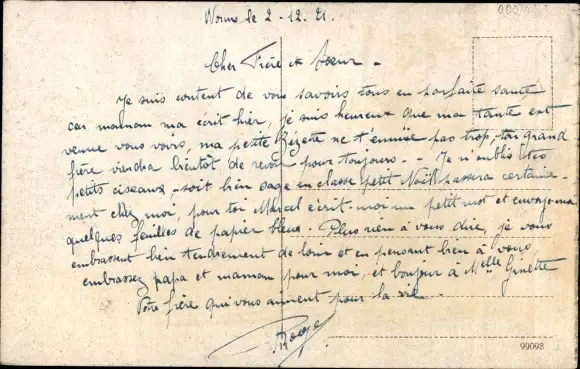 Worms le 2-12.21.
Cher Frère et Sœur -
Je suis content de vous savoirs tous en parfaite santé
car maman ma écrit hier, je suis heureux que ma tante est
venue vous voirs, ma petite Zézette ne t'ennuie pas trop, ton grand
frère viendra bientôt, de revoir pour toujours. - Je n'oublis tes
petits ciseaux - soit bien sage en classe petit Noël passera certaine-
ment chez moi, pour toi Marcel écrit-moi un petit mot et envoye-ma
quelques feuilles de papier bleue. Plus rien à vous dire, je vous
embrassent bien tendrement de loin et en pensant bien à vous
embrassez papa et maman pour moi, et bonjour à Melle Ginette
Votre frère qui vous aiment pour la vie
99098